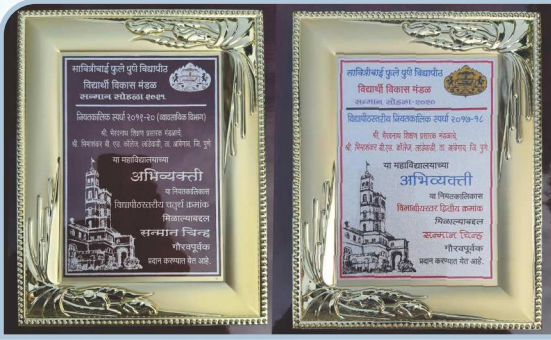 सावित्रीबाई फुले पुणे विद्यापीठ
विद्यार्थी विकास मंडळ
सन्मान सोहळा २०२१
नियतकालिक स्पर्धा २०१९-२० (व्यावसायिक विभाग)
श्री. भैरवनाथ शिक्षण प्रसारक मंडळाचे,
श्री. भिमाशंकर बी.एड. कॉलेज, लांडेवाडी, ता. आंबेगाव, जि. पुणे
या महाविद्यालयाच्या
अभिव्यक्ती
या नियतकालिकास
विद्यापीठस्तरीय चतुर्थ क्रमांक
मिळाल्याबद्दल
सन्मान चिन्ह
गौरवपूर्वक
प्रदान करण्यात येत आहे.
सावित्रीबाई फुले पुणे विद्यापीठ
विद्यार्थी विकास मंडळ
सन्मान सोहळा-२०२०
विद्यापीठस्तरीय नियतकालिक स्पर्धा २०१७-१८
श्री. भैरवनाथ शिक्षण प्रसारक मंडळाचे,
श्री. भिमाशंकर बी.एड. कॉलेज, लांडेवाडी, ता. आंबेगाव, जि. पुणे
या महाविद्यालयाच्या
अभिव्यक्ती
या नियतकालिकास
विभागीयस्तर द्वितीय क्रमांक
मिळाल्याबद्दल
सन्मान चिन्ह
गौरवपूर्वक
प्रदान करण्यात येत आहे.